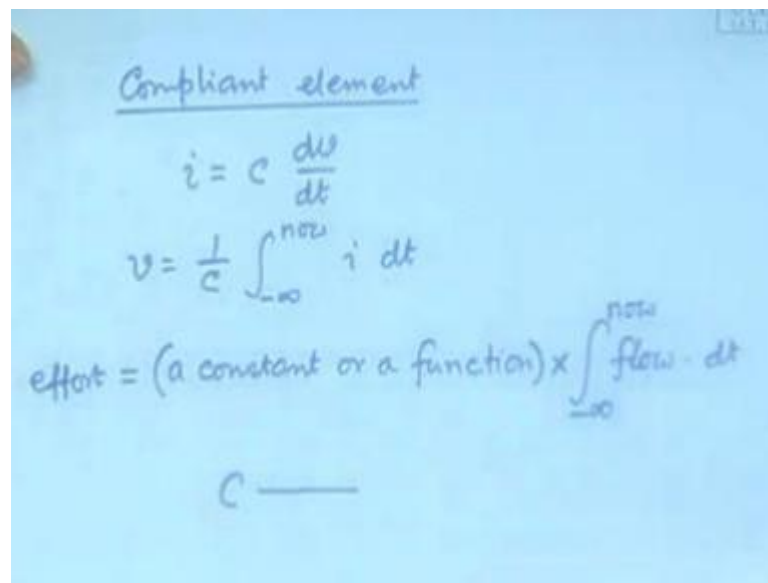 Compliant element
i = C dv/dt
v = 1/C ∫_{-∞}^{now} i dt
effort = (a constant or a function) x ∫_{-∞}^{now} flow · dt
C —